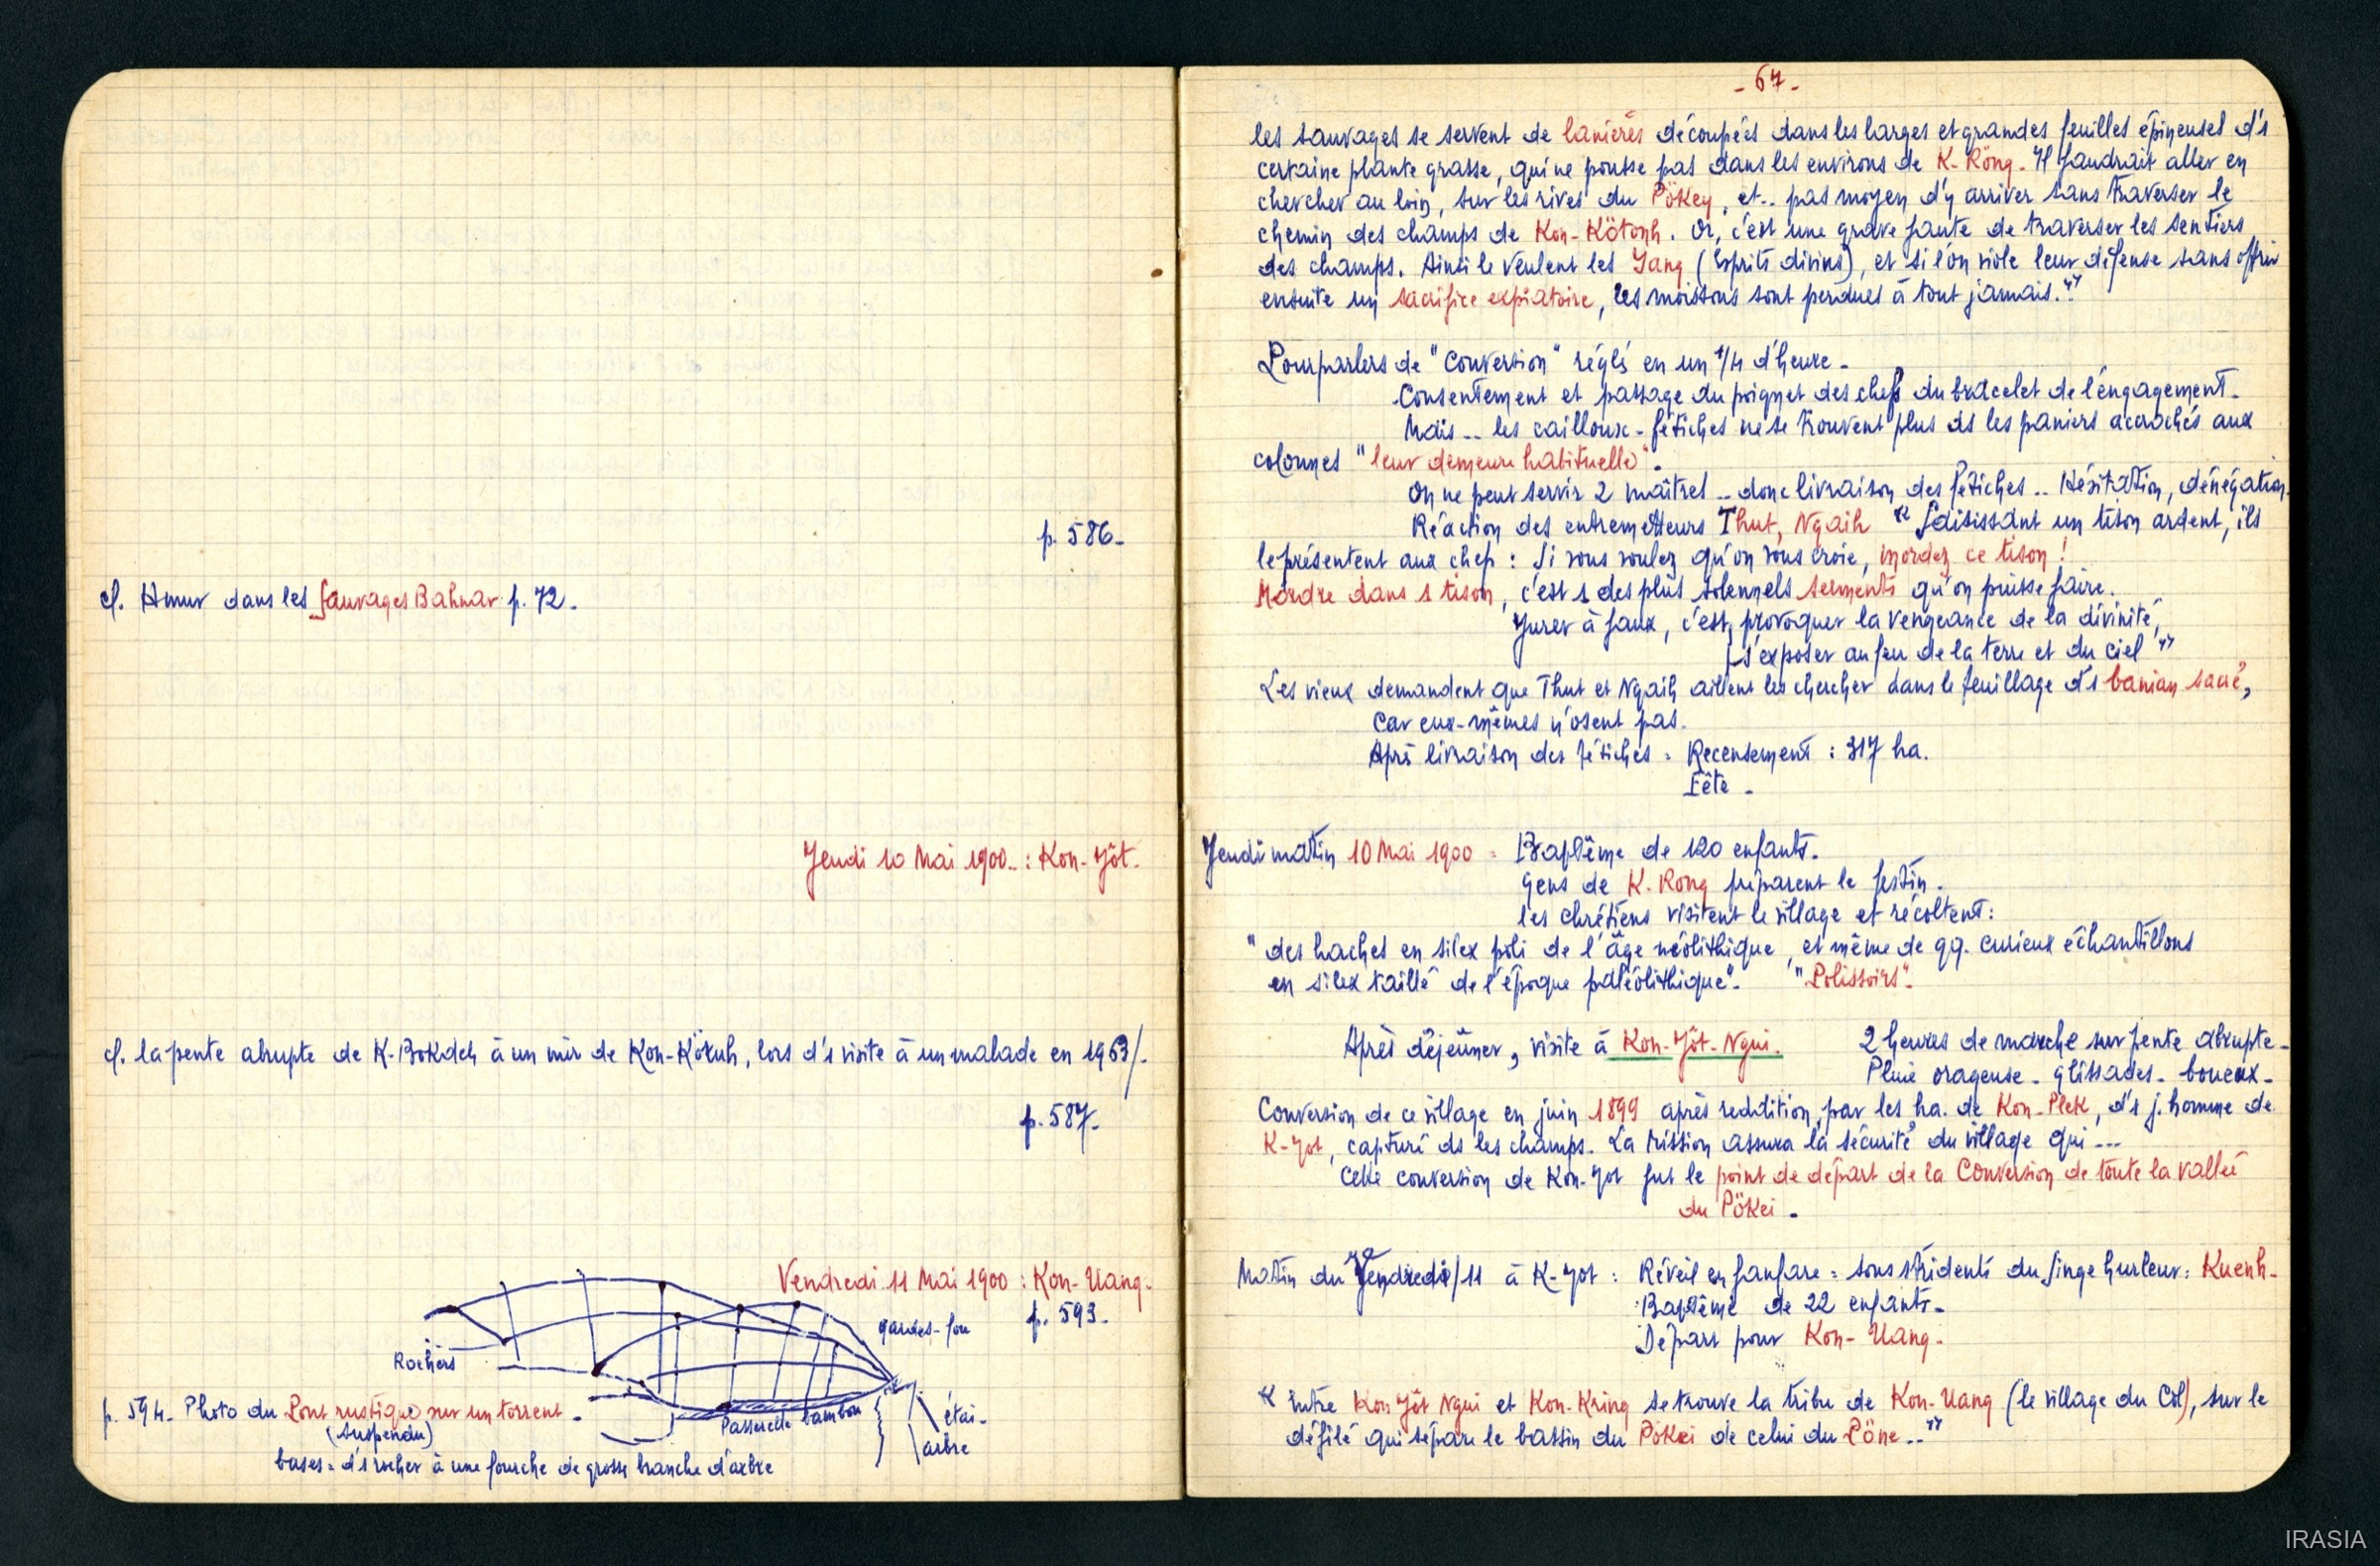 p. 586-
cf. Hmur dans les Sauvages Bahnar p. 72.
Jeudi 10 Mai 1900.. : Kon-Jôt.
cf. la pente abrupte de K-BoKdeh à un mir de Kon-Köxuh, lors d's visite à un malade en 1963/.
p. 587-
Vendredi 11 Mai 1900 : Kon-Uang-
p. 593-
gardes-fou
Rochers
p. 594- Photo du Pont rustique sur un torrent-
(suspendu)
Passerelle bambou
étai-
arbre
bases = d's rocher à une fourche de grosse branche d'arbre
- 67-
les sauvages se servent de lanières découpées dans les larges et grandes feuilles épineuses d's
certaine plante grasse, qui ne pousse pas dans les environs de K-Röng. Il faudrait aller en
chercher au loin, sur les rives du Pökey, et.. pas moyen d'y arriver sans traverser le
chemin des champs de Kon-Kötonh. Or, c'est une grave faute de traverser les sentiers
des champs. Ainsi le veulent les Yang (Esprits divins), et si l'on viole leur défense sans offrir
ensuite un sacrifice expiatoire, les moissons sont perdues à tout jamais."
Pourparlers de "Conversion" réglés en un 1/4 d'heure-
Consentement et passage du poignet des chefs du bracelet de l'engagement-
Mais -- les cailloux-fétiches ne se trouvent plus ds les paniers acrochés aux
colonnes "leur demeure habituelle".
On ne peut servir 2 maîtres -- donc livraison des fétiches .. Hésitation, dénégation.
Réaction des entremetteurs Thut, Ngaih "Saisissant un tison ardent, ils
le présentent aux chefs : Si vous voulez qu'on vous croie, mordez ce tison !
Mordre dans 1 tison, c'est 1 des plus solennels serments qu'on puisse faire.
Jurer à faux, c'est provoquer la vengeance de la divinité,
s'exposer au feu de la terre et du ciel"
Les vieux demandent que Thut et Ngaih aillent les chercher dans le feuillage d's banian sacré,
car eux-mêmes n'osent pas.
Après livraison des fétiches = Recensement : 317 ha.
Fête -
Jeudi matin 10 Mai 1900 = Baptême de 120 enfants.
Gens de K. Rong préparent le festin.
les chrétiens visitent le village et récoltent :
"des haches en silex poli de l'âge néolithique, et même de qq. curieux échantillons
en silex taillé de l'époque paléolithique". "Polissoirs".
Après déjeuner, visite à Kon-Jôt-Ngui. 2 heures de marche sur pente abrupte-
Pluie orageuse- glissades- boueux-
Conversion de ce village en juin 1899 après reddition, par les ha. de Kon-Plek, d's j. homme de
K-Jot, capturé ds les champs. La Mission assura la sécurité du village qui ---
Cette conversion de Kon-Jot fut le point de départ de la Conversion de toute la vallée
du Pökei.
Matin du Vendredi/11 à K-Jot : Réveil en fanfare = sons stridents du singe hurleur : Kuenh-
Baptême de 22 enfants-
Départ pour Kon-Uang-
"Entre Kon Jôt Ngui et Kon-Kring se trouve la tribu de Kon-Uang (le village du Col), sur le
défilé qui sépare le bassin du Pökei de celui du Pöne.."
IRASIA